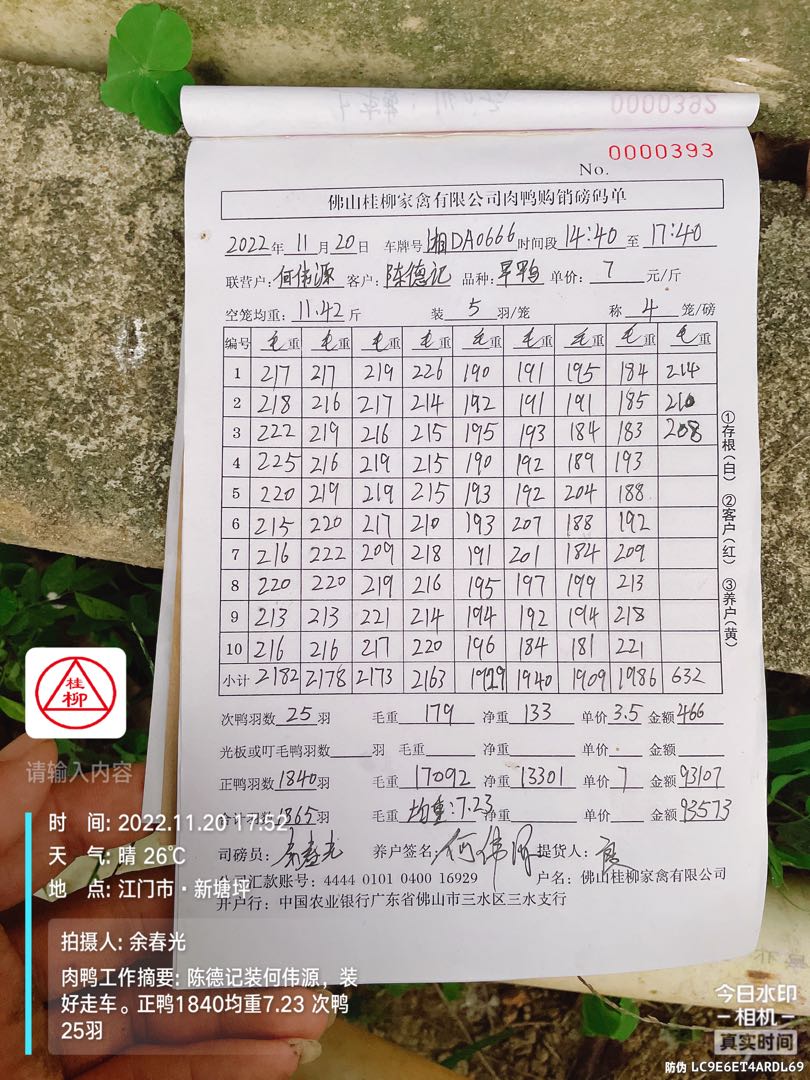 0000392
No. 0000393
佛山桂柳家禽有限公司肉鸭购销磅码单
2022年11月20日 车牌号湘DA0666时间段14:40至17:40
联营户:何伟源 客户:陈德记 品种:旱鸭 单价:7元/斤
空笼均重:11.42斤 装5羽/笼 称4笼/磅
编号 毛重 毛重 毛重 毛重 毛重 毛重 毛重 毛重 毛重
1 217 217 219 226 190 191 195 184 214
2 218 216 217 214 192 191 191 185 210
3 222 219 216 215 195 193 184 183 208
4 225 216 219 215 190 192 189 193
5 220 219 219 215 193 192 204 188
6 215 220 217 210 193 207 188 192
7 216 222 209 218 191 201 184 209
8 220 220 219 216 195 197 199 213
9 213 213 221 214 194 192 194 218
10 216 216 217 220 196 184 181 221
小计 2182 2178 2173 2163 1929 1940 1909 1986 632
①存根(白) ②客户(红) ③养户(黄)
次鸭羽数25羽 毛重179 净重133 单价3.5 金额466
光板或叮毛鸭羽数 羽 毛重 净重 单价 金额
正鸭羽数1840羽 毛重17092 净重13301 单价7 金额93107
合计羽数1865羽 均重:7.23 净重 单价 金额93573
司磅员:余春光 养户签名:何伟源 提货人:
公司汇款账号:4444 0101 0400 16929 户名:佛山桂柳家禽有限公司
开户行:中国农业银行广东省佛山市三水区三水支行
桂
柳
请输入内容
时 间:2022.11.20 17:52
天 气:晴 26℃
地 点:江门市·新塘坪
拍摄人:余春光
肉鸭工作摘要:陈德记装何伟源，装
好走车。正鸭1840均重7.23 次鸭
25羽
今日水印
相机
真实时间
防伪 LC9E6ET4ARDL69